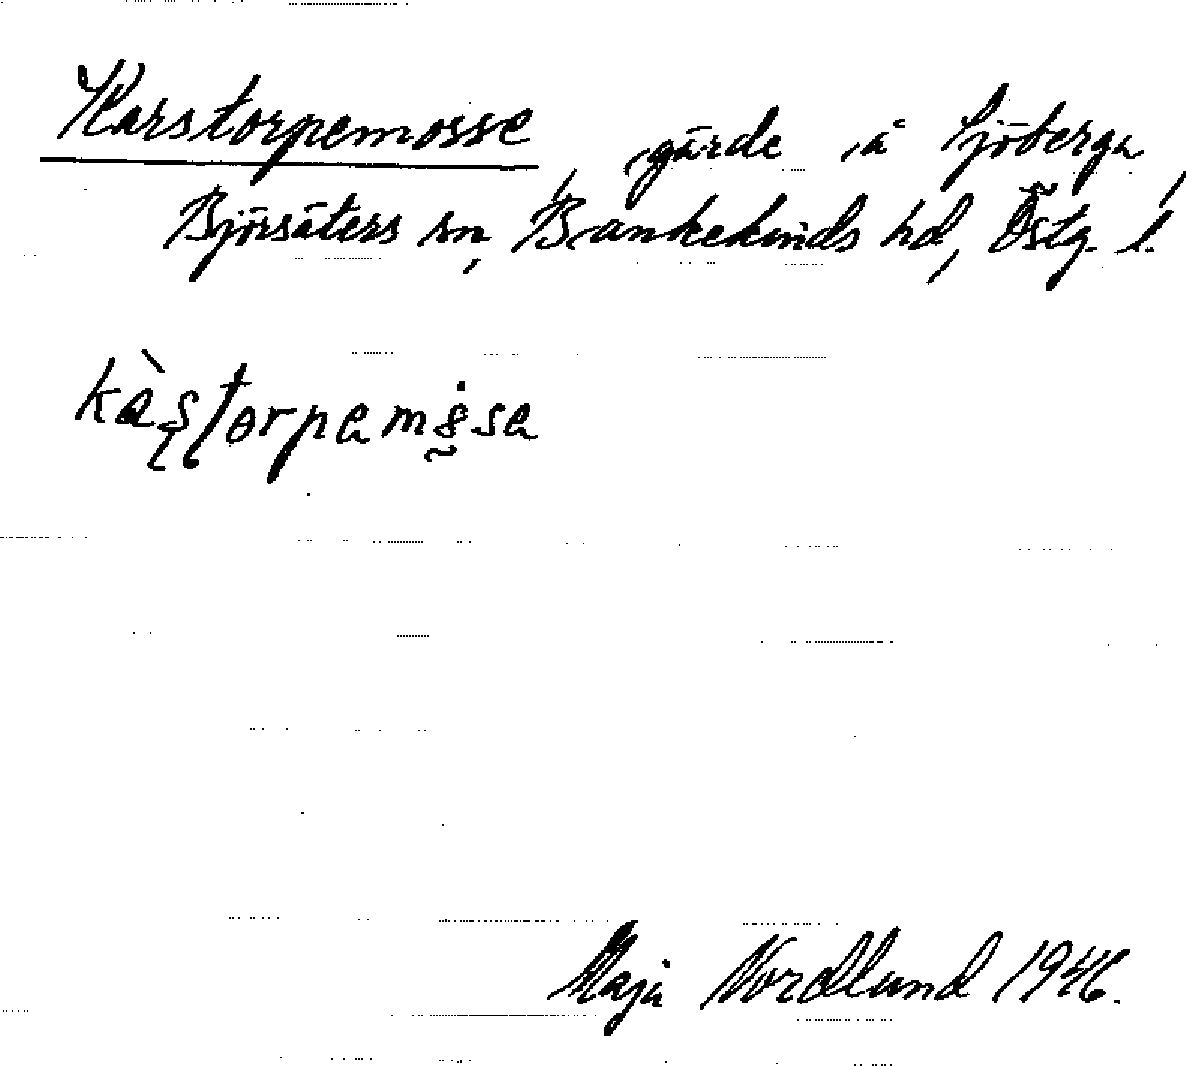 Karstorpemosse, gärde å Sjöberga,
Björsäters sn, Bankekinds hd, Östg. l.
Maja Nordlund 1946.